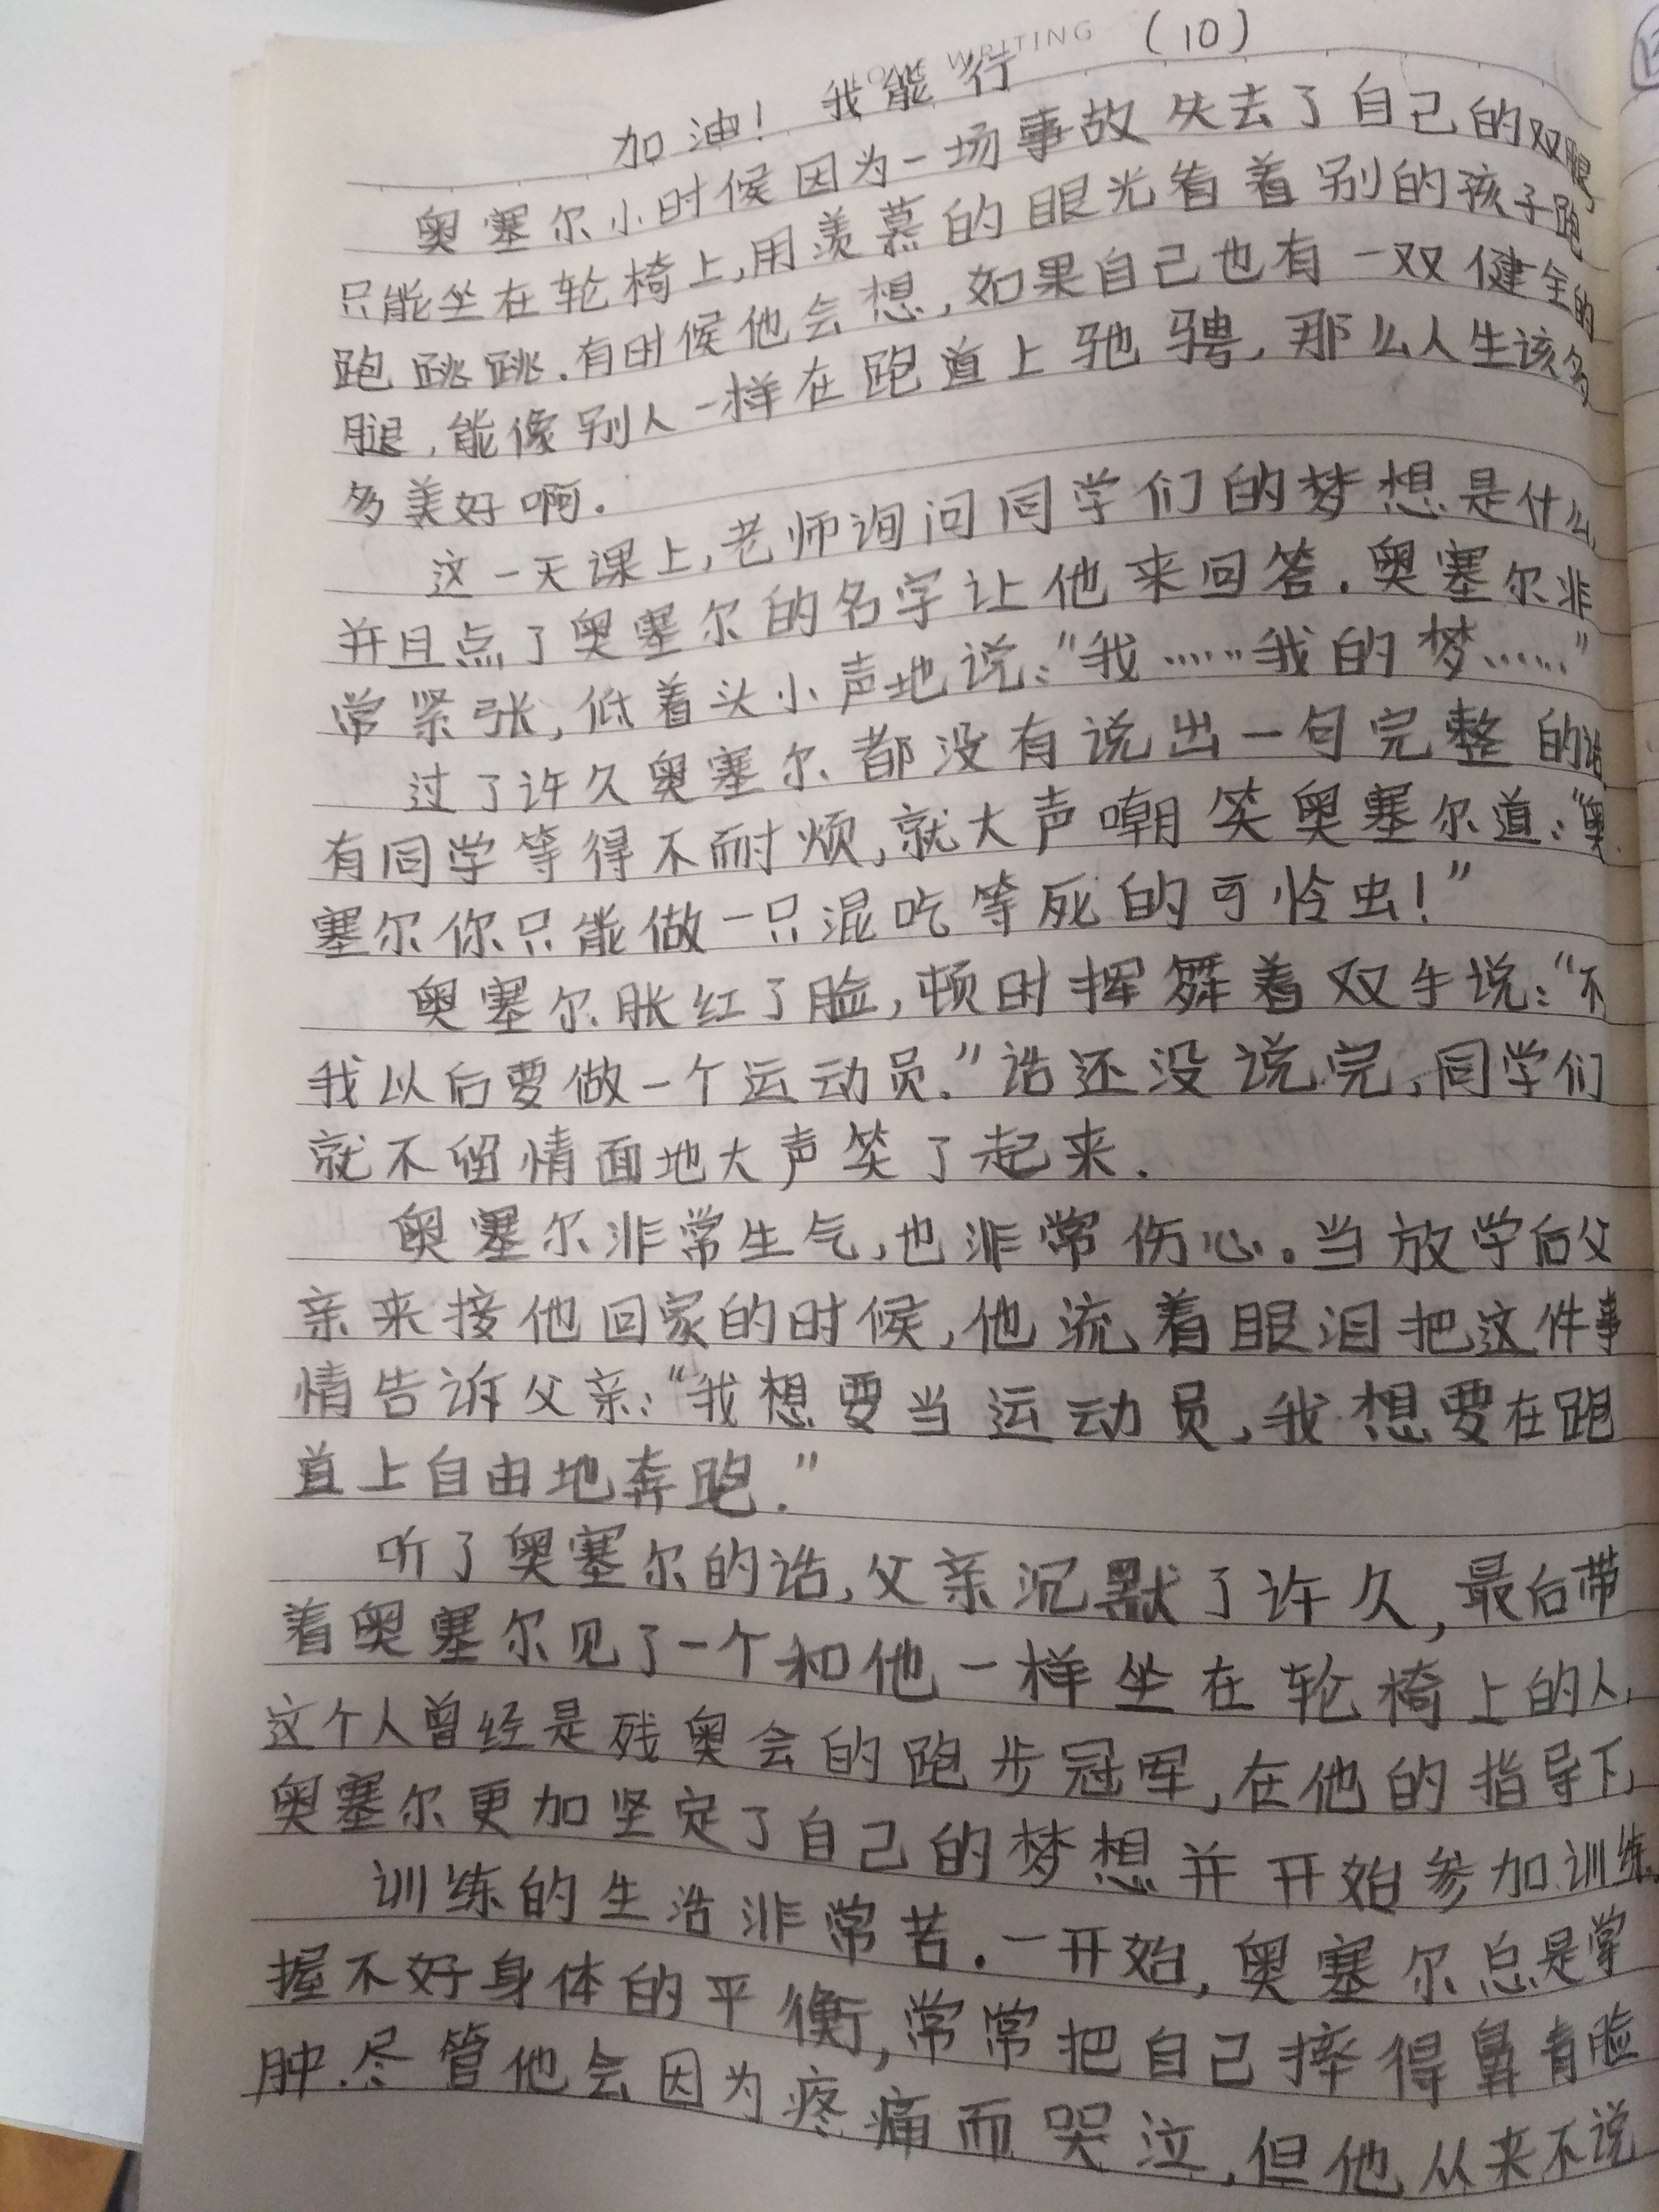 LOVE WRITING
(10)
加油！我能行
奥塞尔小时候因为一场事故失去了自己的双腿,
只能坐在轮椅上,用羡慕的眼光看着别的孩子跑
跑跳跳.有时候他会想,如果自己也有一双健全的
腿,能像别人一样在跑道上驰骋,那么人生该多
多美好啊.
这一天课上,老师询问同学们的梦想是什么,
并且点了奥塞尔的名字让他来回答.奥塞尔非
常紧张,低着头小声地说:“我……我的梦……”
过了许久奥塞尔都没有说出一句完整的话
有同学等得不耐烦,就大声嘲笑奥塞尔道:“奥
塞尔你只能做一只混吃等死的可怜虫!”
奥塞尔胀红了脸,顿时挥舞着双手说:“不
我以后要做一个运动员.”话还没说完,同学们
就不留情面地大声笑了起来.
奥塞尔非常生气,也非常伤心。当放学后父
亲来接他回家的时候,他流着眼泪把这件事
情告诉父亲:“我想要当运动员,我想要在跑
道上自由地奔跑.”
听了奥塞尔的话,父亲沉默了许久,最后带
着奥塞尔见了一个和他一样坐在轮椅上的人,
这个人曾经是残奥会的跑步冠军,在他的指导下,
奥塞尔更加坚定了自己的梦想并开始参加训练.
训练的生活非常苦.一开始,奥塞尔总是掌
握不好身体的平衡,常常把自己摔得鼻青脸
肿.尽管他会因为疼痛而哭泣,但他从来不说